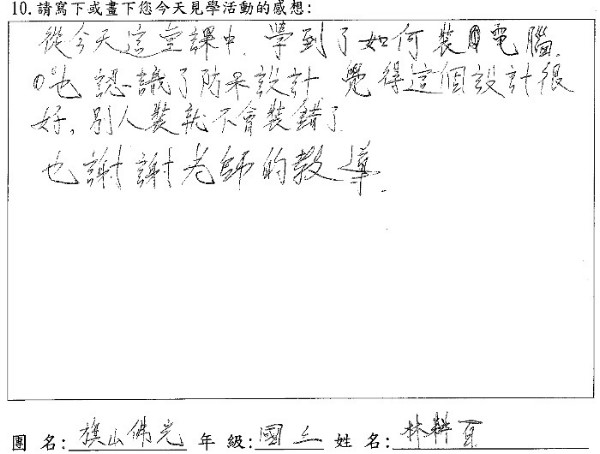 10.請寫下或畫下您今天見學活動的感想:
從今天這堂課中, 學到了如何裝電腦,
也認識了防呆設計 覺得這個設計很
好, 別人裝就不會裝錯了
也謝謝老師的教導.
團 名:旗山佛光 年 級:國三 姓 名:林耕